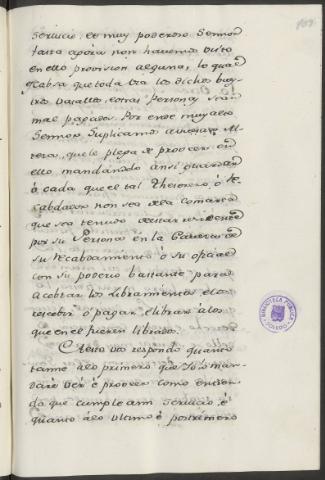 servicio, è muy poderoso Sennor
fasta agora non havemos visto
en ello provision alguna, lo qual
es cabsa que toda via los dichos
e otras Personas sean
mal pagados. Por ende muy alto
Sennor Suplicamos a vuestra Al
teza, que le plega de proveer en
ello mandando ansi guardar
è cada que el tal Thesorero ò Re
cabdador non sea de la Comarca
que sea tenudo de estar residente
por su Persona en la Cabeza de
su recabdamiento ò su oficial
con su poderio bastante para
acebtar los libramientos è los
rescebir è pagar è librar à los
que en el fueren librados.
A esto vos respondo quanto
tanne à lo primero que Yo lo man
daré ver è proveer como entien
da que cumple à mi servicio, è
quanto à lo ultimo è postrimero
BIBLIOTECA PUBLICA
TOLEDO